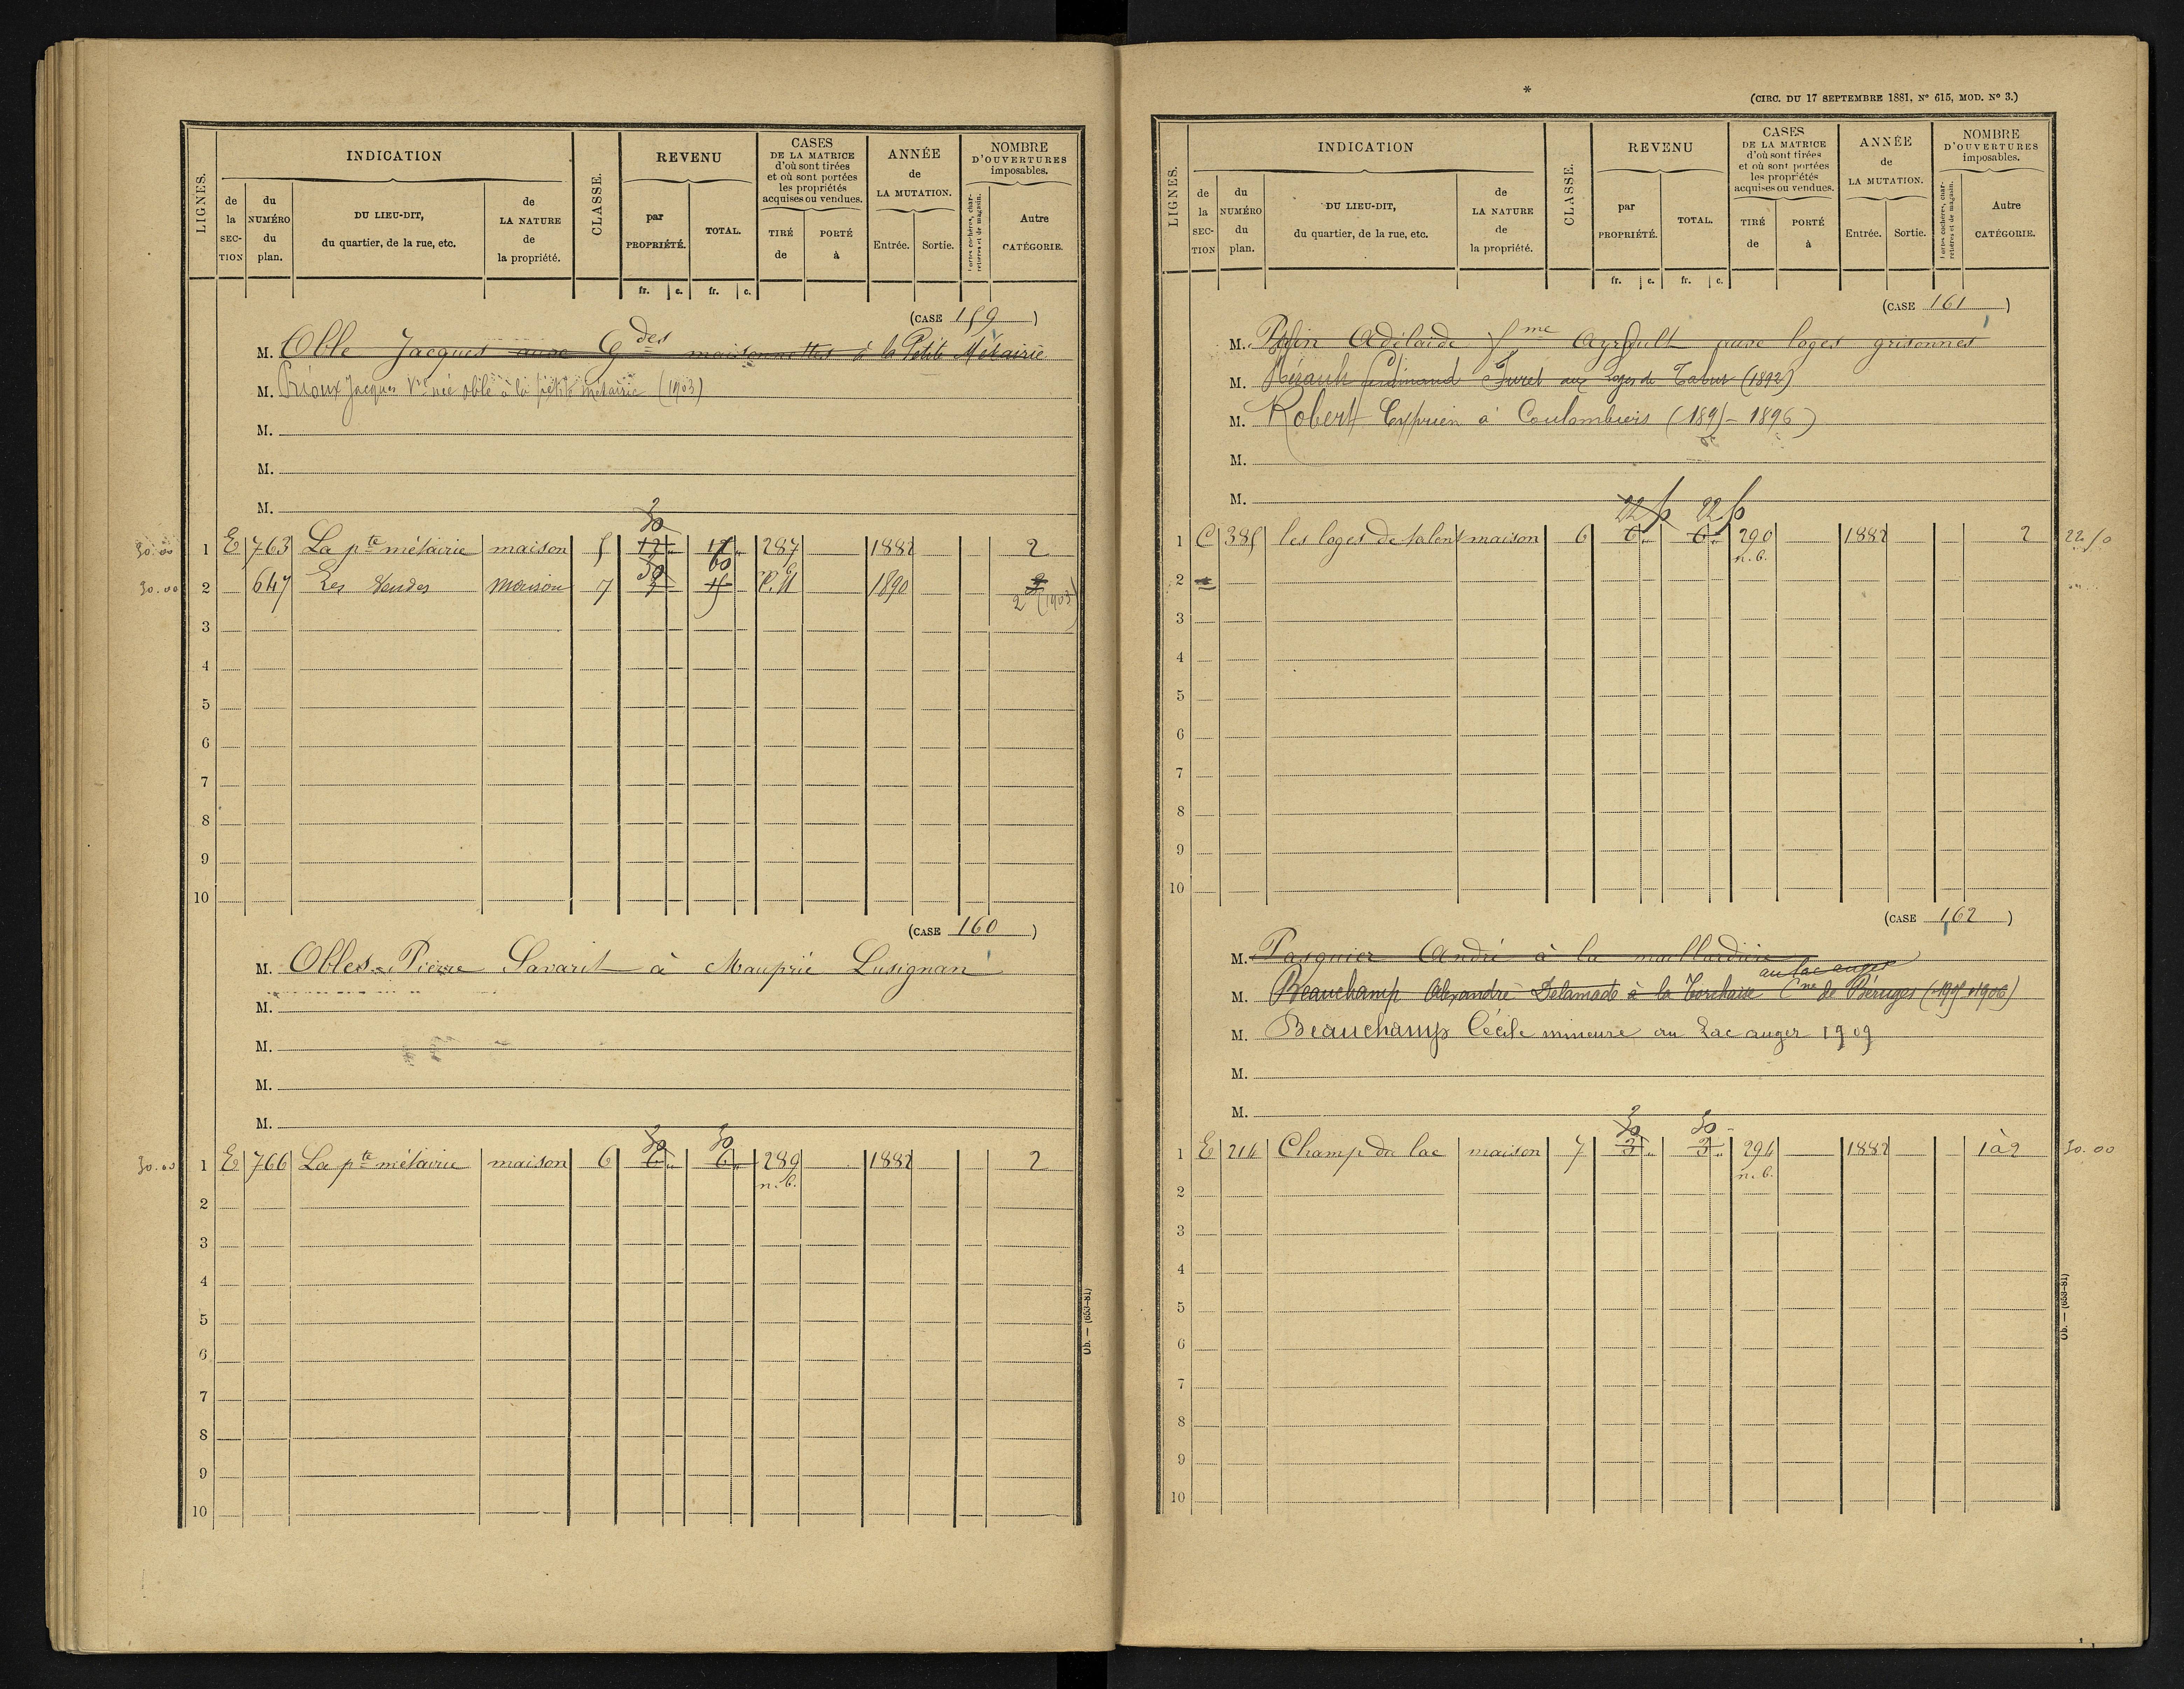 LIGNES.
INDICATION
de la SECTION
du NUMÉRO du plan.
DU LIEU-DIT, du quartier, de la rue, etc.
de LA NATURE de la propriété.
CLASSE.
REVENU
par PROPRIÉTÉ.
TOTAL.
fr. c. fr. c.
CASES DE LA MATRICE d'où sont tirées et où sont portées les propriétés acquises ou vendues.
TIRÉ de
PORTÉ à
ANNÉE de LA MUTATION.
Entrée.
Sortie.
NOMBRE D'OUVERTURES imposables.
Portes cochères, charretières et de magasin.
Autre CATÉGORIE.
(CASE 159)
M. Oble Jacques aux Gdes maisonnettes à la Petite Métairie
M. Prioux Jacques Vve née oble à la petite métairie (1903)
M.
M.
M.
30
30.00 1 E 763 La pte métairie maison 5 12 12 287 1882 2
30 60
30.00 2 647 Les Vendes maison 7 3 15 1890 2 (1903)
3
4
5
6
7
8
9
10
(CASE 160)
M. Obles Pierre Savarit à Mauprié Lusignan
M.
M.
M.
M.
30 30
30.00 1 E 766 La pte métairie maison 6 6 6 289 1882 2
n.b.
2
3
4
5
6
7
8
9
10
Ob. — (653-81)
(CIRC. DU 17 SEPTEMBRE 1881, N° 615, MOD. N° 3.)
LIGNES.
INDICATION
de la SECTION
du NUMÉRO du plan.
DU LIEU-DIT, du quartier, de la rue, etc.
de LA NATURE de la propriété.
CLASSE.
REVENU
par PROPRIÉTÉ.
TOTAL.
fr. c. fr. c.
CASES DE LA MATRICE d'où sont tirées et où sont portées les propriétés acquises ou vendues.
TIRÉ de
PORTÉ à
ANNÉE de LA MUTATION.
Entrée.
Sortie.
NOMBRE D'OUVERTURES imposables.
Portes cochères, charretières et de magasin.
Autre CATÉGORIE.
(CASE 161)
M. Adélaide fme Ayrault aux loges grisonnes
M. Ferdinand Furet aux Loges de Tabut (1892)
M. Robert Cyprien à Coulombiers (1895-1896)
M.
M.
22 50 22 50
1 C 385 les loges de talent maison 6 6 6 290 1882 2 22.50
n.b.
2
3
4
5
6
7
8
9
10
(CASE 162)
M. Pasquier André à la maillardière
au lac auger
M. Beauchamp Alexandre Delamade à la Torchaise Cne de Béruges (1905-1906)
M. Beauchamp Cécile mineure au Lac auger 1909
M.
M.
30 30
1 E 214 Champ du lac maison 7 3 3 294 1882 1à2 30.00
n.b.
2
3
4
5
6
7
8
9
10
Ob. — (653-81)